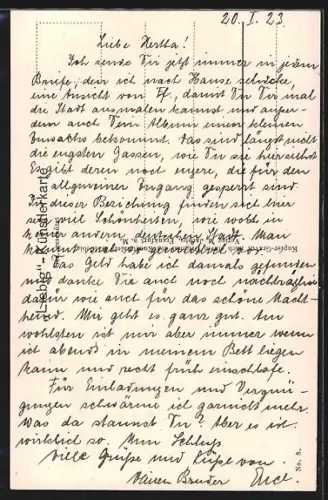 20. I. 23
Liebe Hertha!
Ich sende Dir jetzt immer in jedem
Briefe, den ich nach Hause schicke
eine Ansicht von Ff, damit Du Dir mal
die Stadt ausmalen kannst und außer-
dem auch Dein Album einen kleinen
Zuwachs bekommt. Das sind längst nicht
die engsten Gassen, wie Du sie hier siehst
Es gibt deren noch engere, die für den
allgemeinen Zugang gesperrt sind.
In dieser Beziehung finden sich hier
sehr viel Schönheiten, wie wohl in
keiner andern deutschen Stadt. Man
kommt sich vor.
Das Geld habe ich damals gefunden
und danke Dir auch noch nachträglich
dafür wie auch für das schöne Nacht-
hemd. Mir geht es ganz gut. Am
wohlsten ist mir aber immer wenn
ich abends in meinem Bett liegen
kann und recht früh einschlafe.
Für Einladungen und Vergnü-
gungen schwärme ich garnicht mehr.
Was da staunst Du? Aber es ist
wirklich so. Nun Schluß
Viele Grüße und Küsse von
Deinem Bruder
"-Künstlerkarte
No. 8.